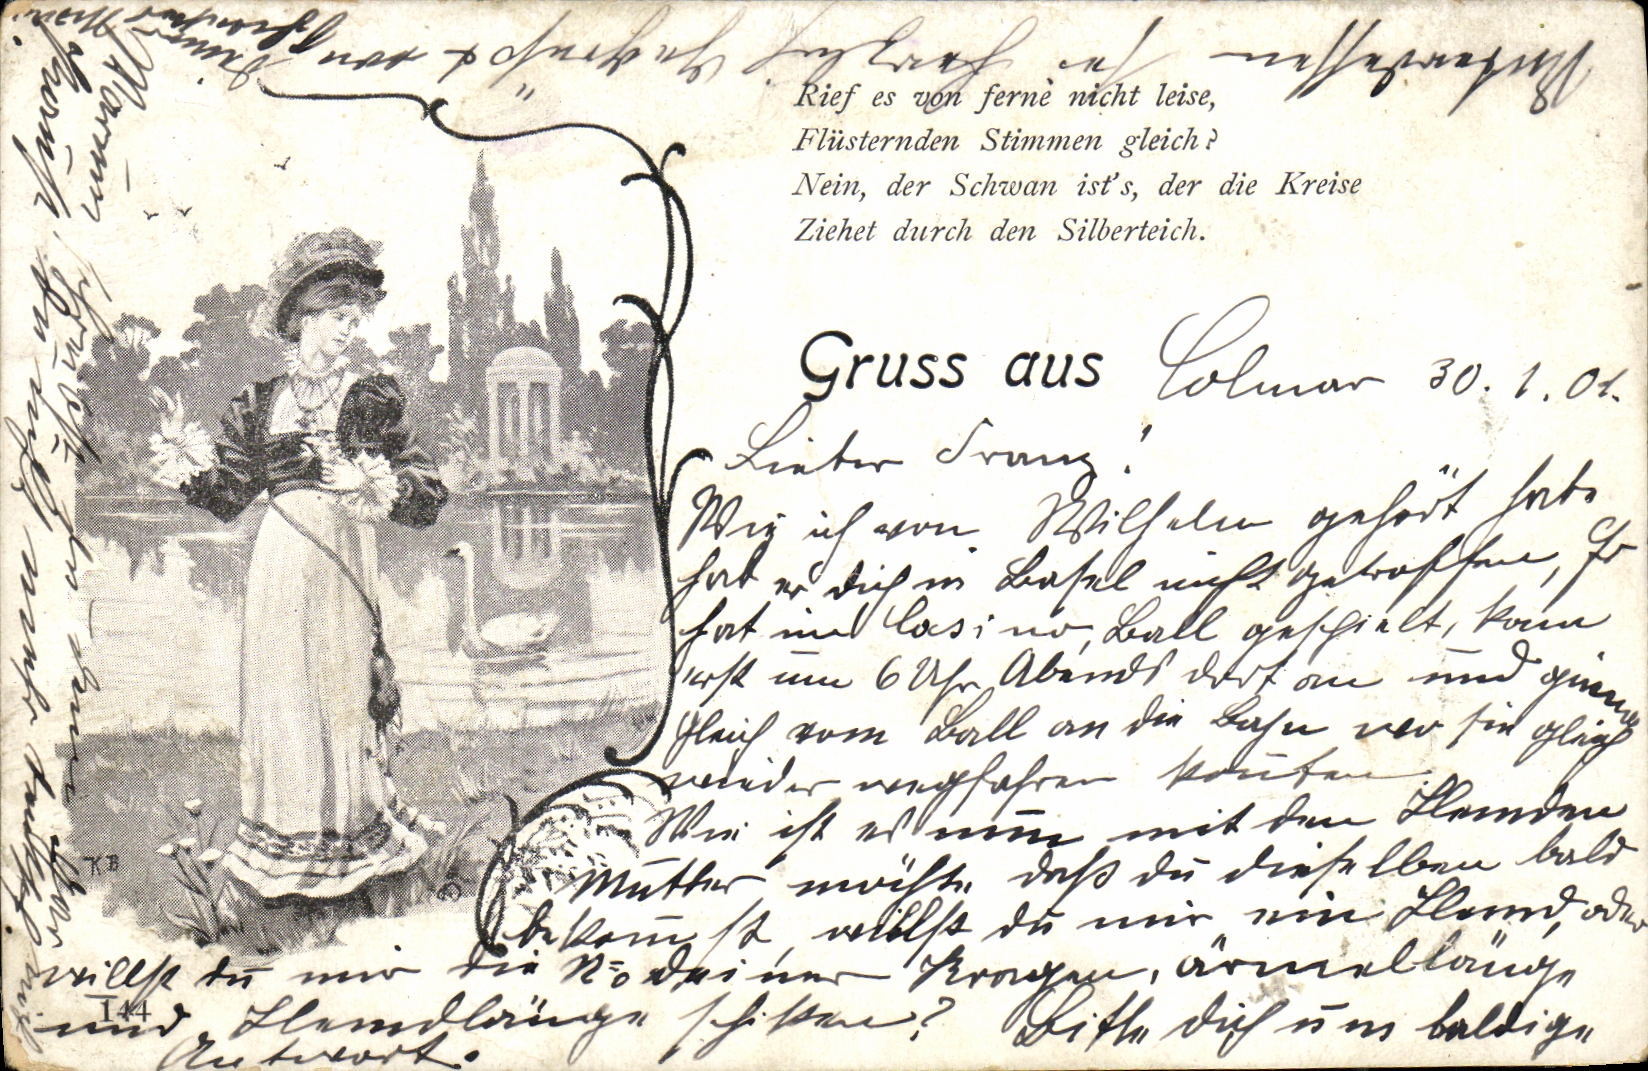 Rief es von ferne nicht leise,
Flüsternden Stimmen gleich?
Nein, der Schwan ist's, der die Kreise
Ziehet durch den Silberteich.
Gruss aus Colmar 30. 1. 01.
Lieber Franz!
Wie ich von Wilhelm gehört habe
hat er dich in Basel nicht getroffen, Er
hat im Casino Ball gespielt, kam
erst um 6 Uhr Abends dort an und gieng
gleich vom Ball an die Bahn wo sie gleich
wieder wegfahren konnten.
Wie ist es nun mit den Hemden
Mutter möchte daß du dieselben bald
bekommst, willst du mir ein Hemd, oder
willst du mir die No deiner Kragen, ärmellänge
und Hemdlänge schicken? Bitte dich um baldige
Antwort.
Warum schreibst du
an mich mehr
Auf
von
deiner
Schwester
KB
144